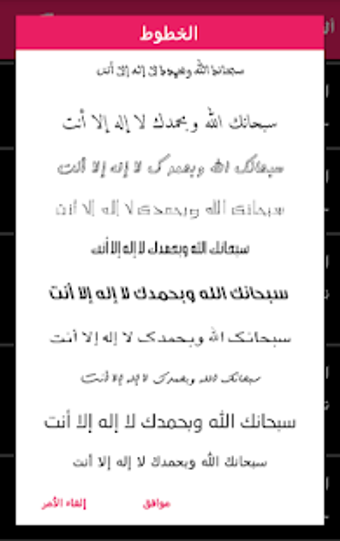 الخطوط
سبحانك الله وبحمدك لا إله إلا أنت
سبحانك الله وبحمدك لا إله إلا أنت
سبحانك الله وبحمدك لا إله إلا أنت
سبحانك الله وبحمدك لا إله إلا أنت
سبحانك الله وبحمدك لا إله إلا أنت
سبحانك الله وبحمدك لا إله إلا أنت
سبحانك الله وبحمدك لا إله إلا أنت
سبحانك الله وبحمدك لا إله إلا أنت
سبحانك الله وبحمدك لا إله إلا أنت
سبحانك الله وبحمدك لا إله إلا أنت
موافق إلغاء الأمر